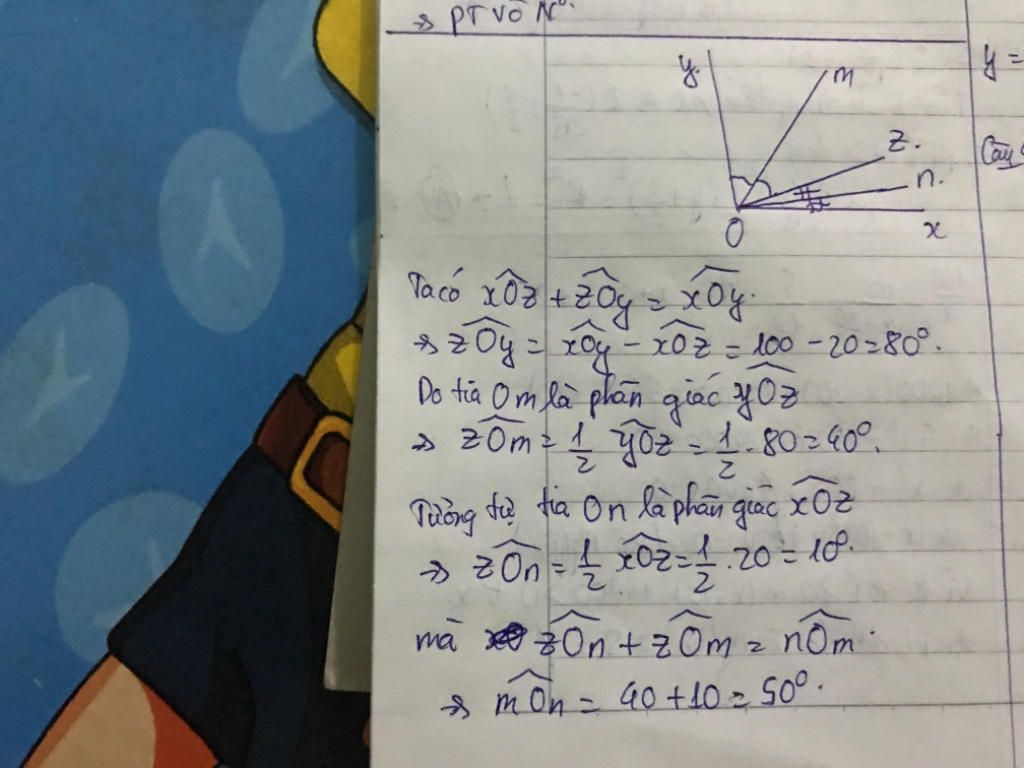 ⇒ PT VÔ Nº.
y =
y.
m
z.
Câu
n.
O
x
Ta có xOz + zOy = xOy.
⇒ zOy = xOy - xOz = 100 - 20 = 80º.
Do tia Om là phân giác yOz
⇒ zOm = 1/2 yOz = 1/2 . 80 = 40º.
Tương tự tia On là phân giác xOz
⇒ zOn = 1/2 xOz = 1/2 . 20 = 10º.
mà zOn + zOm = nOm.
⇒ mOn = 40 + 10 = 50º.